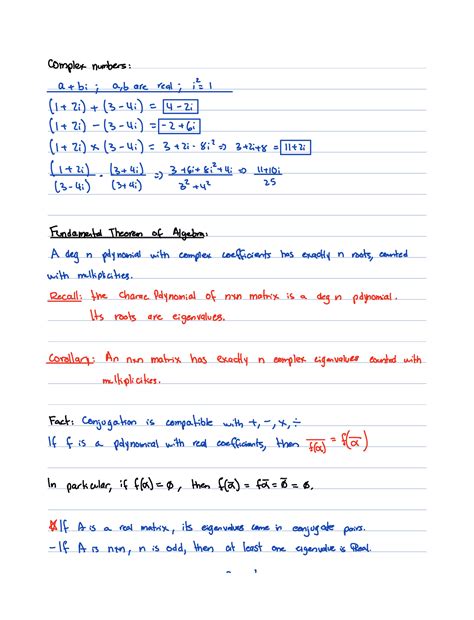 Complex numbers:
a + bi ; a,b are real ; i² = 1
(1 + 2i) + (3 - 4i) = 4 - 2i
(1 + 2i) - (3 - 4i) = -2 + 6i
(1 + 2i) × (3 - 4i) = 3 + 2i - 8i² => 3+2i+8 = 11+2i
(1 + 2i)/(3 - 4i) · (3 + 4i)/(3 + 4i) => 3 + 6i + 8i² + 4i / 3² + 4² => 11+10i / 25
Fundamental Theorem of Algebra:
A deg n polynomial with complex coefficients has exactly n roots, counted
with multiplicities.
Recall: the charac. Polynomial of n×n matrix is a deg n polynomial.
Its roots are eigenvalues.
Corollary: An n×n matrix has exactly n complex eigenvalues counted with
multiplicities.
Fact: Conjugation is compatible with +, -, ×, ÷
If f is a polynomial with real coefficients, then f̅(̅a̅)̅ = f(a̅)
In particular, if f(a) = 0, then f(a̅) = fa̅ = 0̅ = 0.
If A is a real matrix, its eigenvalues come in conjugate pairs.
- If A is n×n, n is odd, then at least one eigenvalue is Real.